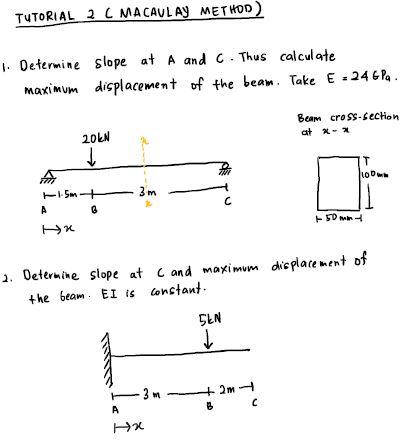 TUTORIAL 2 ( MACAULAY METHOD)
1. Determine slope at A and C. Thus calculate
maximum displacement of the beam. Take E = 24 GPa.
Beam cross-section
at x-x
20kN
x
100mm
1.5m
3m
x
A
B
C
50 mm
x
2. Determine slope at C and maximum displacement of
the beam. EI is constant.
5kN
3m
2m
A
B
C
x